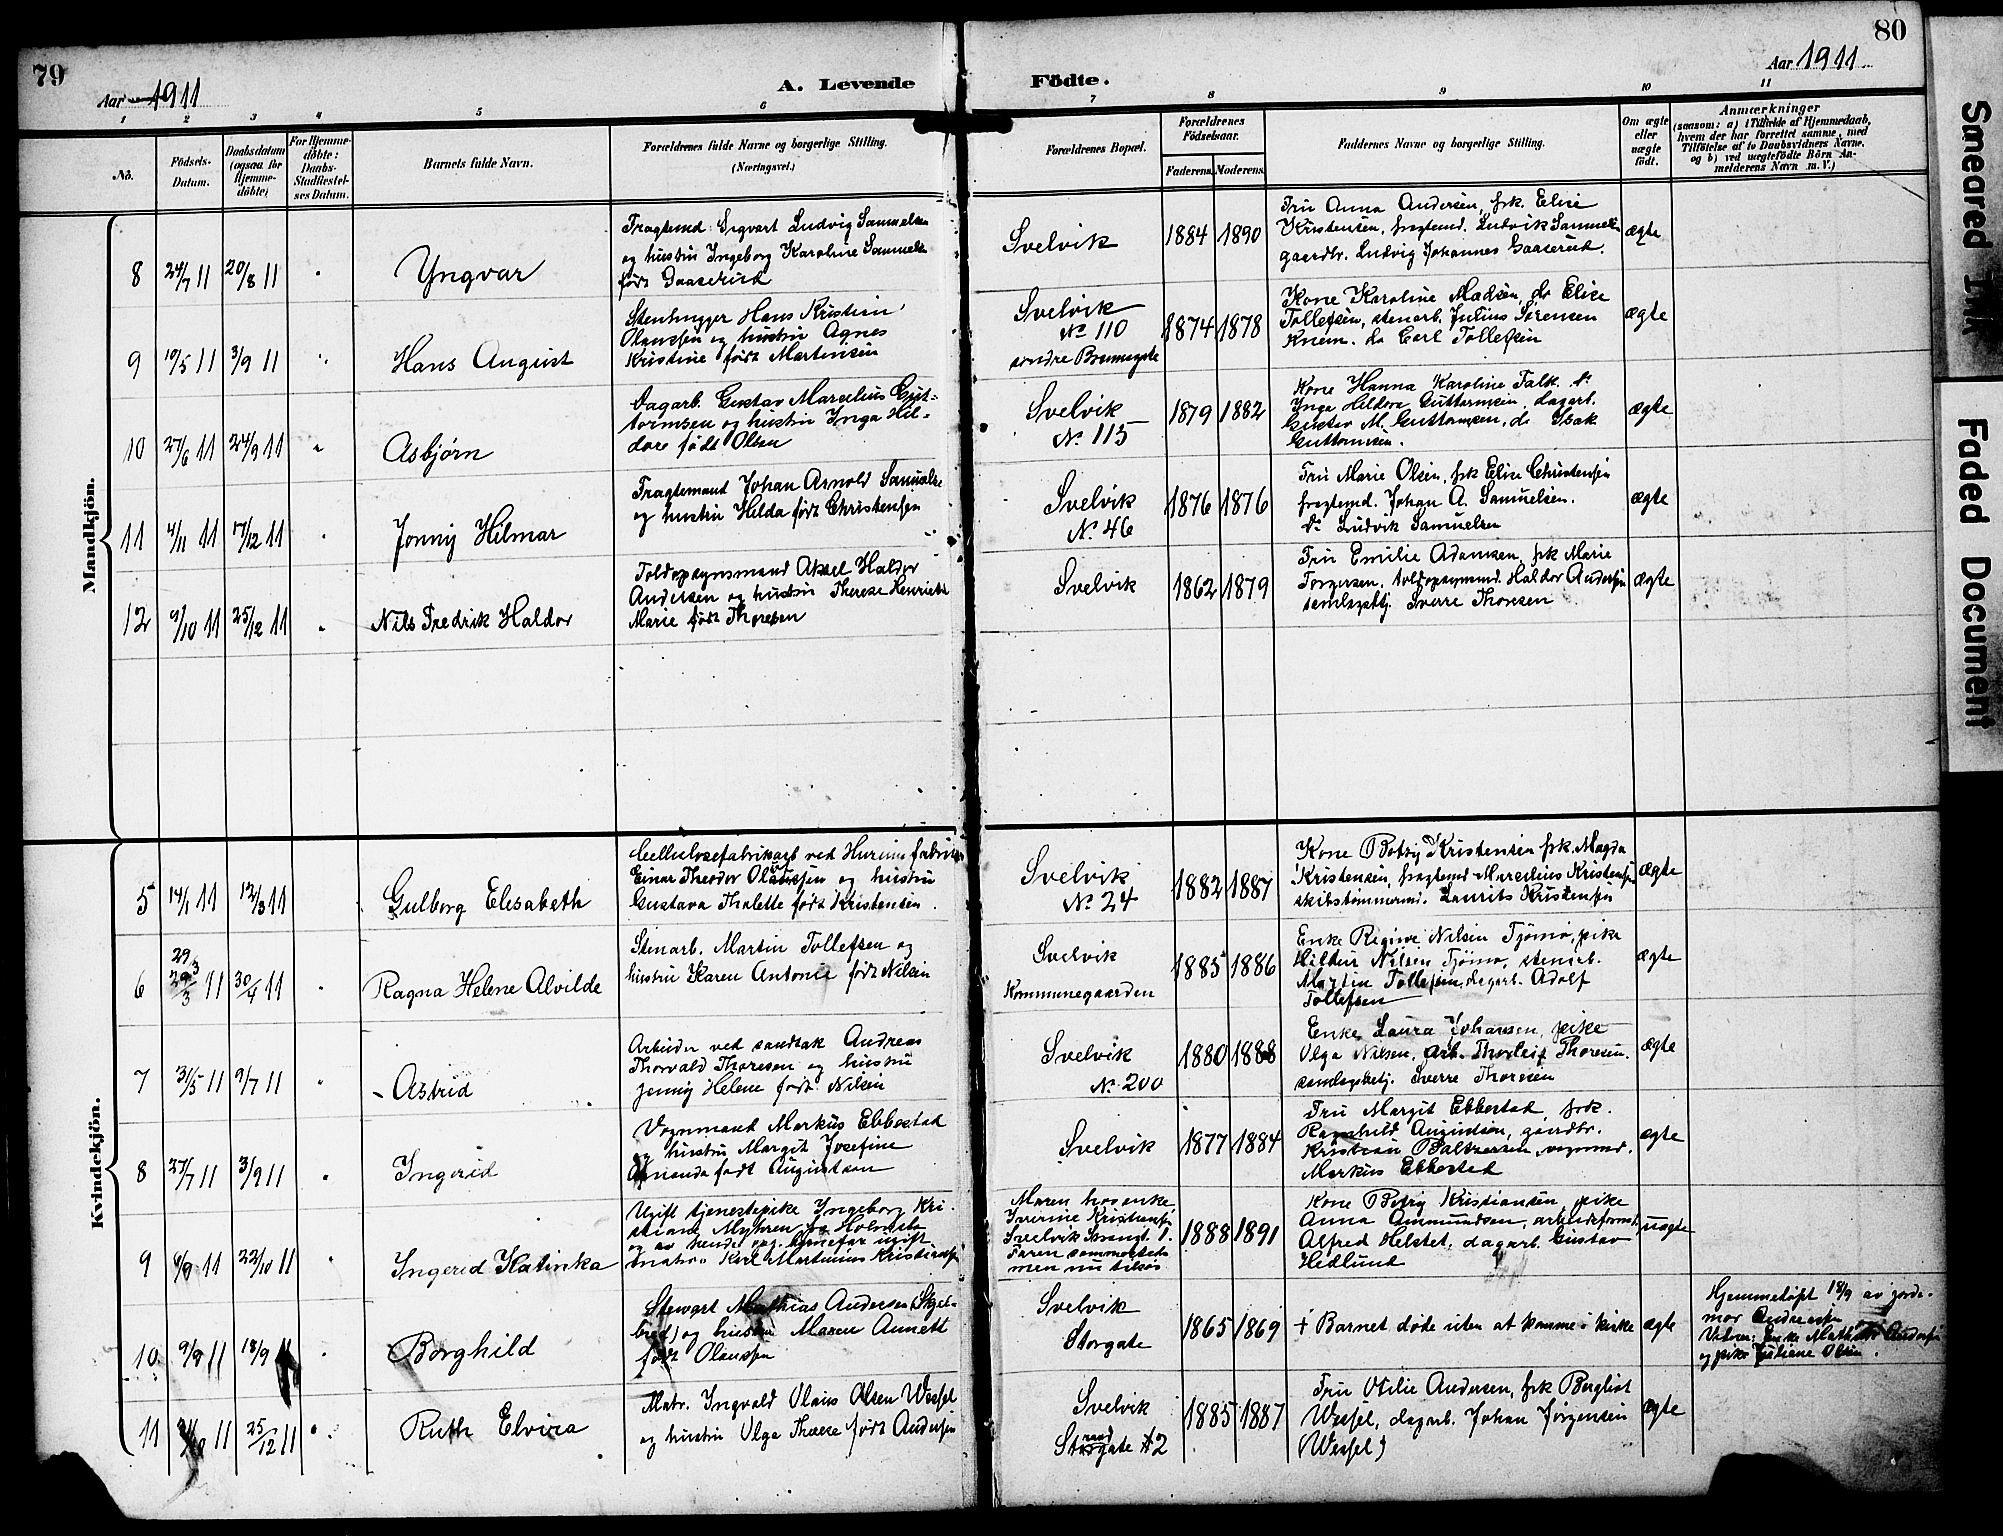 79
Aar 1911
A. Levende
Födte.
80
Aar 1911
1 2 3 4 5 6 7 8 9 10 11
No.
Födsels-
Datum.
Daabsdatum
(ogsaa for
Hjemme-
döbte)
For Hjemme-
döbte:
Daabs-
Stadfæstel-
ses Datum.
Barnets fulde Navn.
Forældrenes fulde Navne og borgerlige Stilling.
(Næringsvei.)
Forældrenes Bopæl.
Forældrenes
Födselsaar.
Faderens. Moderens.
Faddernes Navne og borgerlige Stilling.
Om ægte
eller
uægte
födt.
Anmærkninger
(saasom: a) i Tilfælde af Hjemmedaab,
hvem der har forrettet samme, med
Tilföielse af to Daabsvidners Navne,
og b) ved uægtefödte Börn An-
melderens Navn m. V.)
Mandkjön.
8 24/7 11 20/8 11 " Yngvar
Fragtemd. Sigvart Ludvig Samuelsen
og hustru Ingeborg Karoline Samuels
født Gaaserud
Svelvik
1884 1890
Fru Anna Andersen, frk Elise
Kristensen, fragtemd. Ludvik Samuelsen
gaardbr. Ludvig Johannes Gaaserud.
ægte
9 10/5 11 3/9 11 " Hans August
Stenhugger Hans Kristian
Olaussen og hustru Agnes
Kristine født Martensen
Svelvik
No 110
søndre Brennagate
1874 1878
Kone Karoline Madsen, do Elise
Tollefsen, stenarb. Julius Sørensen
Knem. do Carl Tollefsen
ægte
10 27/6 11 24/9 11 " Asbjørn
Dagarb. Gustav Marselius Gut-
tormsen og hustru Inga Hil-
dore født Olsen
Svelvik
No. 115
1879 1882
Kone Hanna Karoline Falk. do
Inga Hildora Guttormsen, dagarb.
Gustav M. Guttormsen, do Isak
Guttormsen.
ægte
11 4/11 11 17/12 11 " Jonny Hilmar
Fragtemand Johan Arnold Samuelse
og hustru Hilda født Christensen
Svelvik
No. 46
1876 1876
Fru Marie Olsen, frk Elise Christensen
fragtemd. Johan A. Samuelsen.
do Ludvik Samuelsen
ægte
12 9/10 11 25/12 11 " Nils Fredrik Haldor
Toldopsynsmand Aksel Haldor
Andersen og hustru Therese Henriette
Marie født Thoresen
Svelvik
1862 1879
Fru Emilie Adamsen, frk Marie
Torgersen, toldopsynmd. Haldor Andersen
samlagsbtj. Sverre Thoresen
ægte
Kvindekjön.
5 14/1 11 12/3 11 Gulborg Elisabeth
Cellulosefabrikarb ved Hurum fabrikker
Einar Theodor Olaussen og hustru
Gustava Thalette født Kristensen.
Svelvik
No. 24
1882 1887
Kone Betsy Kristensen frk. Magda
Kristensen, fragtemd Marselius Kristensen
skibstømmermd. Laurits Kristensen
ægte
6 29/3 11 30/4 11 " Ragna Helene Alvilde
Stenarb. Martin Tollefsen og
hustru Karen Antonie født Nilsen
Svelvik
Kommunegaarden
1885 1886
Enke Regine Nilsen Tjømø, pike
Hildur Nilsen Tjømø, stenarb.
Martin Tollefsen, dagarb. Adolf
Tollefsen
ægte
7 31/5 11 9/7 11 " Astrid
Arbeider ved sandtak Andreas
Thorvald Thoresen og hustru
Jenny Helene født Nilsen
Svelvik
No. 200
1880 1888
Enke Laura Johansen, pike
Olga Nilsen, Arb. Thorleif Thoresen.
samlagsbetj. Sverre Thoresen
ægte
8 27/7 11 3/9 11 " Ingerid
Vognmand Markus Ebbestad
og hustru Margit Josefine
Amanda født Augustsen
Svelvik
1877 1884
Fru Margit Ebbestad, frk.
Ragnhild Augustson, gaardbr.
Kristian Baltzersen, vognmd.
Markus Ebbestad
ægte
9 11 22/10 11 " Ingerid Katinka
Ugift tjenestepike Ingeborg Kri-
stiane Myhren fra Holmsbo
og av hende opg. barnefar ugift
matros Karl Martinius Kristiansen
Moren hos enke
Iverine Kristiansen
Svelvik Strandgt. 1.
Faren sammesteds
men nu tilsøs
1888 1891
Kone Betsy Kristiansen, pike
Anna Ammundsen, arbeidsformd,
Alfred Helstet, dagarb. Gustav
Hedlund
uægte
10 9/9 11 18/9 11 " Borghild
Stewart Mathias Andersen (Skjel-
bred) og hustru Maren Annette
født Olaussen
Svelvik
Storgate
1865 1869
+ Barnet døde uten at komme i kirke
ægte
Hjemmedøpt 18/9 av jorde-
mor Andersen
Vidner: Enke Andersen
og pike Juliane Olsen.
11 11 25/12 11 " Ruth Elvira
Matr. Ingvald Olaus Olsen Wessel
og hustru Olga Therese født Andersen
Svelvik
Strandgate 2
1885 1887
Fru Otilie Andersen, frk Bergliot
Wessel, dagarb. Johan Jørgensen
(Wessel)
ægte
Smeared Ink
Faded Document